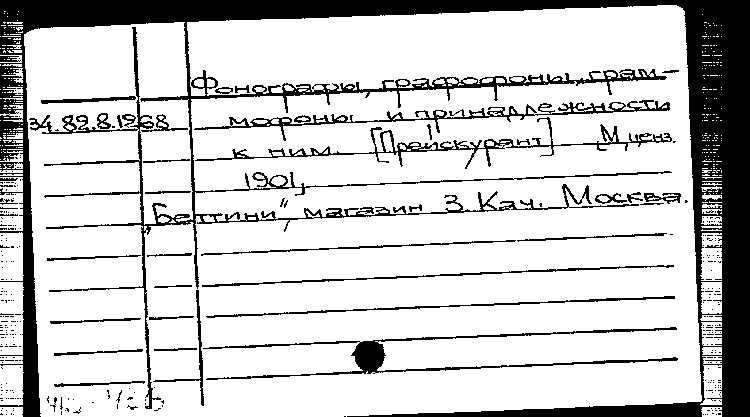 Фонографы, графофоны, грам-
34.82.8.1968 мофоны и принадлежности
к ним. [Прейскурант] [М, ценз.
1901],
"Беттини", магазин З. Кач. Москва.